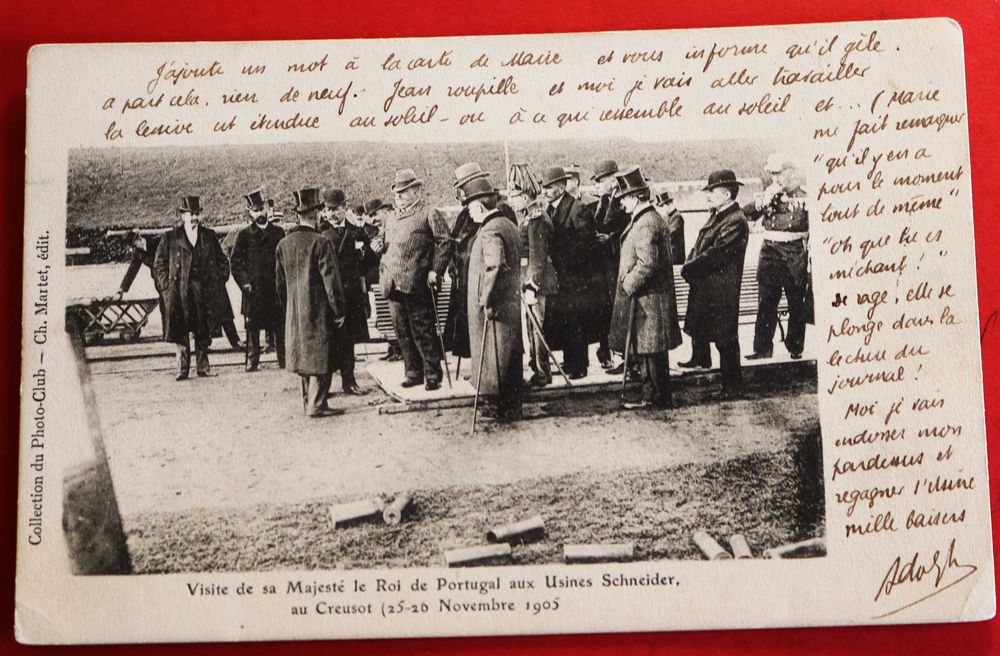 J'ajoute un mot à la carte de Marie et vous informe qu'il gèle.
a part cela, rien de neuf. Jean roupille et moi je vais aller travailler
la lessive est étendue au soleil - ou à ce qui ressemble au soleil et... (Marie
me fait remarquer
"qu'il y en a
pour le moment
tout de même"
"oh que tu es
méchant!"
de rage, elle se
plonge dans la
lecture du
journal!
Moi je vais
endosser mon
pardessus et
regagner l'Usine
mille baisers
Adolph
Collection du Photo-Club — Ch. Martet, édit.
Visite de sa Majesté le Roi de Portugal aux Usines Schneider,
au Creusot (25-26 Novembre 1905